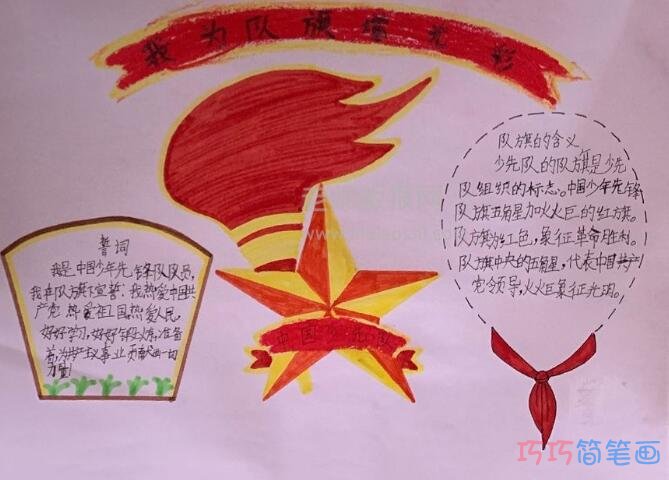 我为队旗增光彩
誓词
我是中国少年先锋队队员,
我在队旗下宣誓:我热爱中国共
产党 热爱祖国,热爱人民,
好好学习,好好锻炼,准备
着,为共产主义事业贡献一切
力量!
中国少先队
队旗的含义
少先队的队旗是少先
队组织的标志。中国少年先锋
队旗五角星加火炬的红旗。
队旗为红色,象征革命胜利。
队旗中央的五角星,代表中国共产
党领导,火炬象征光明。
巧巧简笔画